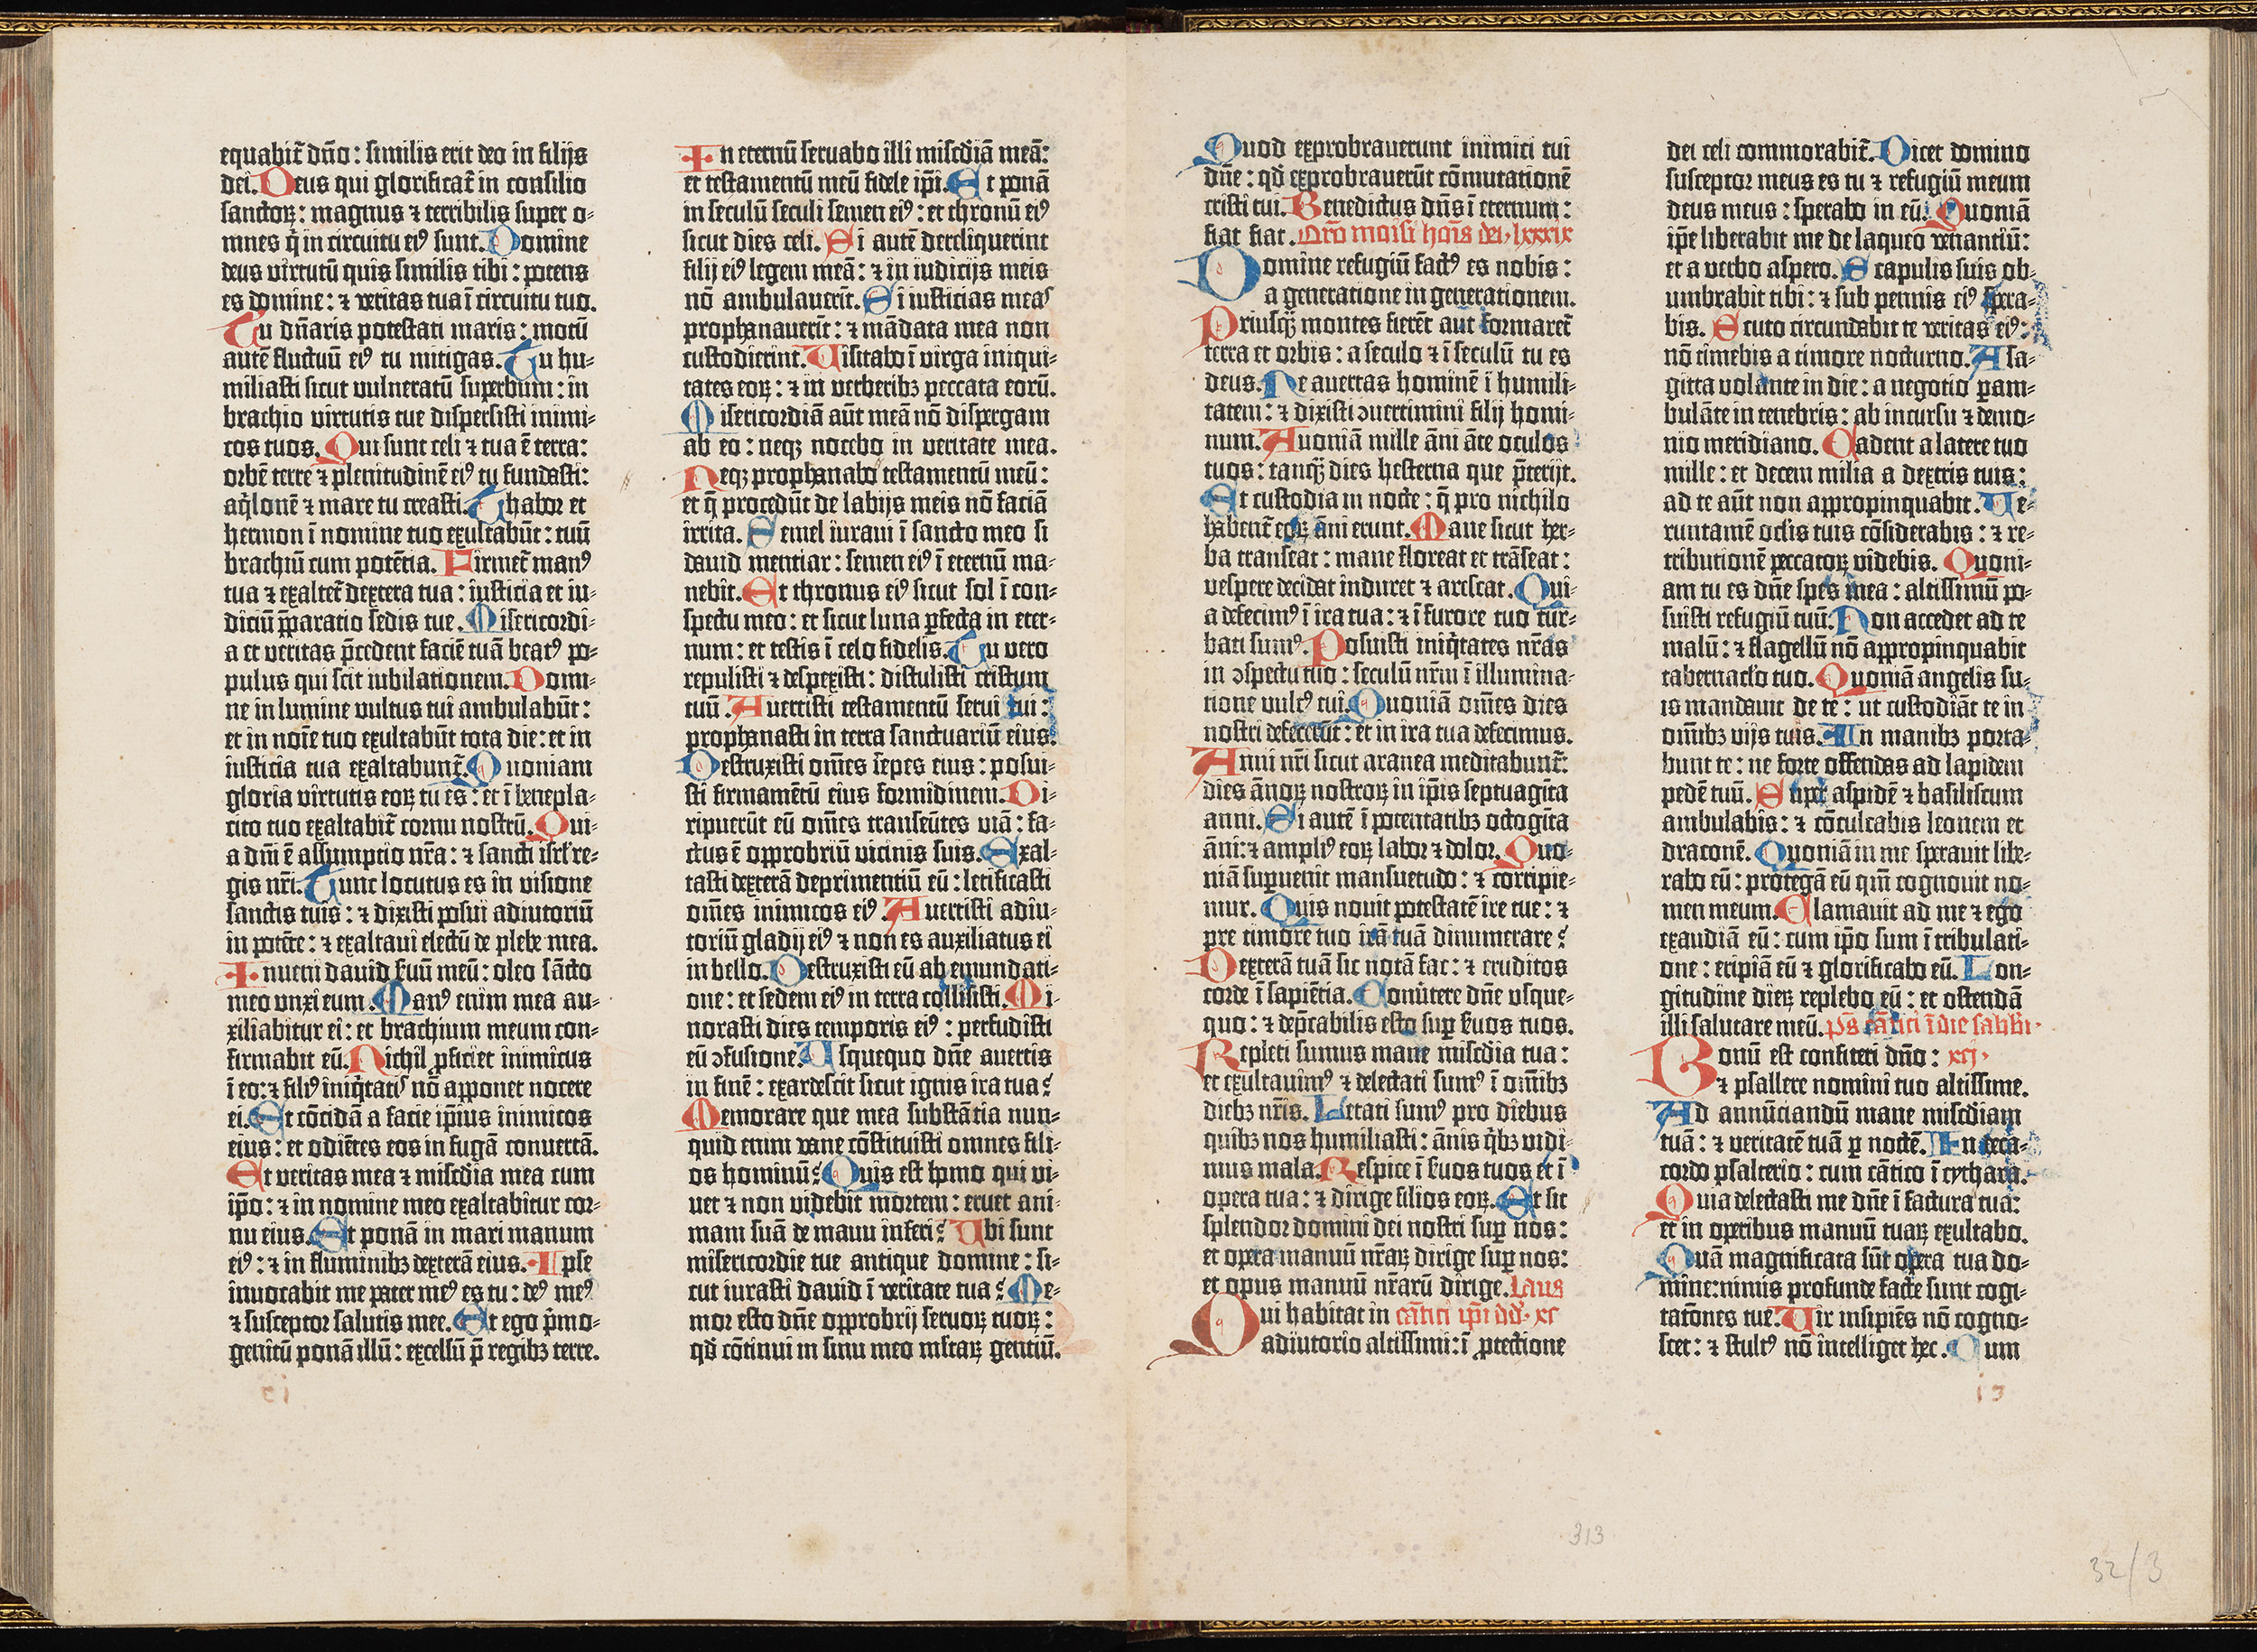 equabit᷑ dño : similis erit deo in filijs
dei. Deus qui glorificat᷑ in consilio
sanctoꝝ : magnus ⁊ terribilis super o⸗
mnes q̇ in circuitu eiꝰ sunt. Domine
deus virtutū quis similis tibi : potens
es domine : ⁊ veritas tua ī circuitu tuo.
Tu dñaris potestati maris : motū
autē fluctuū eiꝰ tu mitigas. Tu hu⸗
miliasti sicut vulneratū superbum : in
brachio virtutis tue dispersisti inimi⸗
cos tuos. Qui sunt celi ⁊ tua ē terra :
orbē terre ⁊ plenitudinē eiꝰ tu fundasti :
aq̇lonē ⁊ mare tu creasti. Thabor et
hermon ī nomine tuo exultabūt : tuū
brachiū cum potētia. Firmet᷑ manꝰ
tua ⁊ exaltet᷑ dextera tua : iusticia et iu⸗
diciū p̄paratio sedis tue. Misericordi⸗
a et veritas p̄cedent faciē tuā beatꝰ po⸗
pulus qui scit iubilationem. Domi⸗
ne in lumine vultus tui ambulabūt :
et in noīe tuo exultabūt tota die : et in
iusticia tua exaltabunt᷑. Quoniam
gloria virtutis eoꝝ tu es : et ī benepla⸗
cito tuo exaltabit᷑ cornu nostrū. Qui⸗
a dñi ē assumptio nr̄a : ⁊ sancti isrl' re⸗
gis nr̄i. Tunc locutus es in visione
sanctis tuis : ⁊ dixisti posui adiutoriū
in potēte : ⁊ exaltaui electū de plebe mea.
Inueni dauid ẜuū meū : oleo sācto
meo unxi eum. Manꝰ enim mea au⸗
xiliabitur ei : et brachium meum con⸗
firmabit eū. Nichil ꝓficiet inimicus
ī eo : ⁊ filiꝰ iniq̇tatis nō apponet nocere
ei. Et cōcidā a facie ip̄ius inimicos
eius : et odiētes eos in fugā conuertā.
Et veritas mea ⁊ misc̄dia mea cum
ip̄o : ⁊ in nomine meo exaltabitur cor⸗
nu eius. Et ponā in mari manum
eiꝰ : ⁊ in fluminibꝫ dexterā eius. Ipse
inuocabit me pater meꝰ es tu : deꝰ meꝰ
⁊ susceptor salutis mee. Et ego p̄mo⸗
genitū ponā illū : excelsū p̄ regibꝫ terre.
In eternū seruabo illi misc̄diā meā :
et testamentū meū fidele ip̄i. Et ponā
in seculū seculi semen eiꝰ : et thronū eiꝰ
sicut dies celi. Si autē dereliquerint
filij eiꝰ legem meā : ⁊ in iudicijs meis
nō ambulauerīt. Si iusticias meas
prophanauerīt : ⁊ mādata mea non
custodierint. Uisitabo ī virga iniqui⸗
tates eoꝝ : ⁊ in verberibꝫ peccata eorū.
Misericordiā aūt meā nō dispergam
ab eo : neqꝫ nocebo in veritate mea.
Neqꝫ prophanabo testamentū meū :
et q̄ procedūt de labijs meis nō faciā
irrita. Semel iuraui ī sancto meo si
dauid mentiar : semen eiꝰ ī eternū ma⸗
nebit. Et thronus eiꝰ sicut sol ī con⸗
spectu meo : et sicut luna ꝑfecta in eter⸗
num : et testis ī celo fidelis. Tu vero
repulisti ⁊ despexisti : distulisti cristum
tuū. Auertisti testamentū serui tui :
prophanasti in terra sanctuariū eius.
Destruxisti om̄es sepes eius : posui⸗
sti firmamētū eius formidinem. Di⸗
ripuerūt eū om̄es transeūtes viā : fa⸗
ctus ē opprobriū vicinis suis. Exal⸗
tasti dexterā deprimentiū eū : letificasti
om̄es inimicos eiꝰ. Auertisti adiu⸗
toriū gladij eiꝰ ⁊ non es auxiliatus ei
in bello. Destruxisti eū ab emundati⸗
one : et sedem eiꝰ in terra collisisti. Mi⸗
norasti dies temporis eiꝰ : perfudisti
eū ꝯfusione. Usquequo dñe auertis
in finē : exardescit sicut ignis ira tua?
Memorare que mea substātia nun⸗
quid enim vane cōstituisti omnes fili⸗
os hominū? Quis est homo qui vi⸗
uet ⁊ non videbit mortem : eruet ani⸗
mam suā de manu inferi? Ubi sunt
misericordie tue antique domine : si⸗
cut iurasti dauid ī veritate tua? Me⸗
mor esto dñe opprobrij seruoꝝ tuoꝝ :
qd̄ cōtinui in sinu meo mltaꝝ gentiū.
Quod exprobrauerunt inimici tui
dñe : qd̄ exprobrauerūt cōmutationē
cristi tui. Benedictus dñs ī eternum :
fiat fiat. Or̄o moisi hoīs dei · lxxxix
Domine refugiū factꝰ es nobis :
a generatione in generationem.
Priusq̄ꝫ montes fierēt aut formaret᷑
terra et orbis : a seculo ⁊ ī seculū tu es
deus. Ne auertas hominē ī humili⸗
tatem : ⁊ dixisti ꝯuertimini filij homi⸗
num. Auoniā mille āni āte oculos
tuos : tanq̄ꝫ dies hesterna que p̄terijt.
Et custodia in nocte : q̄ pro nichilo
habent᷑ eoꝝ āni erunt. Mane sicut her⸗
ba transeat : mane floreat et trāseat :
vespere decidat induret ⁊ arescat. Qui⸗
a defecimꝰ ī ira tua : ⁊ ī furore tuo tur⸗
bati sumꝰ. Posuisti iniq̇tates nr̄as
in ꝯspectu tuo : seculū nr̄m ī illumina⸗
tione vultꝰ tui. Quoniā om̄es dies
nostri defecerūt : et in ira tua defecimus.
Anni nr̄i sicut aranea meditabunt᷑ :
dies ānoꝝ nostroꝝ in ip̄is septuagīta
anni. Si autē ī potentatibꝫ octogīta
āni : ⁊ ampliꝰ eoꝝ labor ⁊ dolor. Quo⸗
niā suꝑuenit mansuetudo : ⁊ corripie⸗
mur. Quis nouit potestatē ire tue : ⁊
pre timore tuo irā tuā dinumerare?
Dexterā tuā sic notā fac : ⁊ eruditos
corde ī sapiētia. Conūtere dñe usque⸗
quo : ⁊ dep̄cabilis esto suꝑ ẜuos tuos.
Repleti sumus mane misc̄dia tua :
et exultauimꝰ ⁊ delectati sumꝰ ī om̄ibꝫ
diebꝫ nr̄is. Letati sumꝰ pro diebus
quibꝫ nos humiliasti : ānis q̇bꝫ vidi⸗
mus mala. Respice ī ẜuos tuos et ī
opera tua : ⁊ dirige filios eoꝝ. Et sit
splendor domini dei nostri suꝑ nos :
et opera manuū nr̄aꝝ dirige suꝑ nos :
et opus manuū nr̄arū dirige. Laus
Qui habitat in cātici ip̄i dd · xc
adiutorio altissimi : ī ꝓtectione
dei celi commorabit᷑. Dicet domino
susceptor meus es tu ⁊ refugiū meum
deus meus : sperabo in eū. Quoniā
ip̄e liberabit me de laqueo venantiū :
et a verbo aspero. Scapulis suis ob⸗
umbrabit tibi : ⁊ sub pennis eiꝰ spera⸗
bis. Scuto circundabit te veritas eiꝰ :
nō timebis a timore nocturno. A sa⸗
gitta volante in die : a negotio pam⸗
bulāte in tenebris : ab incursu ⁊ demo⸗
nio meridiano. Cadent a latere tuo
mille : et decem milia a dextris tuis :
ad te aūt non appropinquabit. Ue⸗
runtamē oclis tuis cōsiderabis : ⁊ re⸗
tributionē peccatoꝝ videbis. Quoni⸗
am tu es dñe spes mea : altissimū po⸗
suisti refugiū tuū. Non accedet ad te
malū : ⁊ flagellū nō appropinquabit
tabernaclo tuo. Quoniā angelis su⸗
is mandauit de te : ut custodiāt te in
om̄ibꝫ vijs tuis. In manibꝫ porta⸗
bunt te : ne forte offendas ad lapidem
pedē tuū. Suꝑ aspidē ⁊ basiliscum
ambulabis : ⁊ cōculcabis leonem et
draconē. Quoniā in me sperauit libe⸗
rabo eū : protegā eū qm̄ cognouit no⸗
men meum. Clamauit ad me ⁊ ego
exaudiā eū : cum ip̄o sum ī tribulati⸗
one : eripiā eū ⁊ glorificabo eū. Lon⸗
gitudine dieꝝ replebo eū : et ostendā
illi salutare meū. p̄s cātici ī die sabbi ·
Bonū est confiteri dño : xcj ·
⁊ psallere nomini tuo altissime.
Ad annūciandū mane misc̄diam
tuā : ⁊ veritatē tuā ꝑ noctē. In deca⸗
cordo psalterio : cum cātico ī cythara.
Quia delectasti me dñe ī factura tua :
et in operibus manuū tuaꝝ exultabo.
Quā magnificata sūt opera tua do⸗
mine : nimis profunde facte sunt cogi⸗
tatōnes tue. Uir insipiēs nō cogno⸗
scet : ⁊ stultꝰ nō intelliget hec. Cum
313
32/3